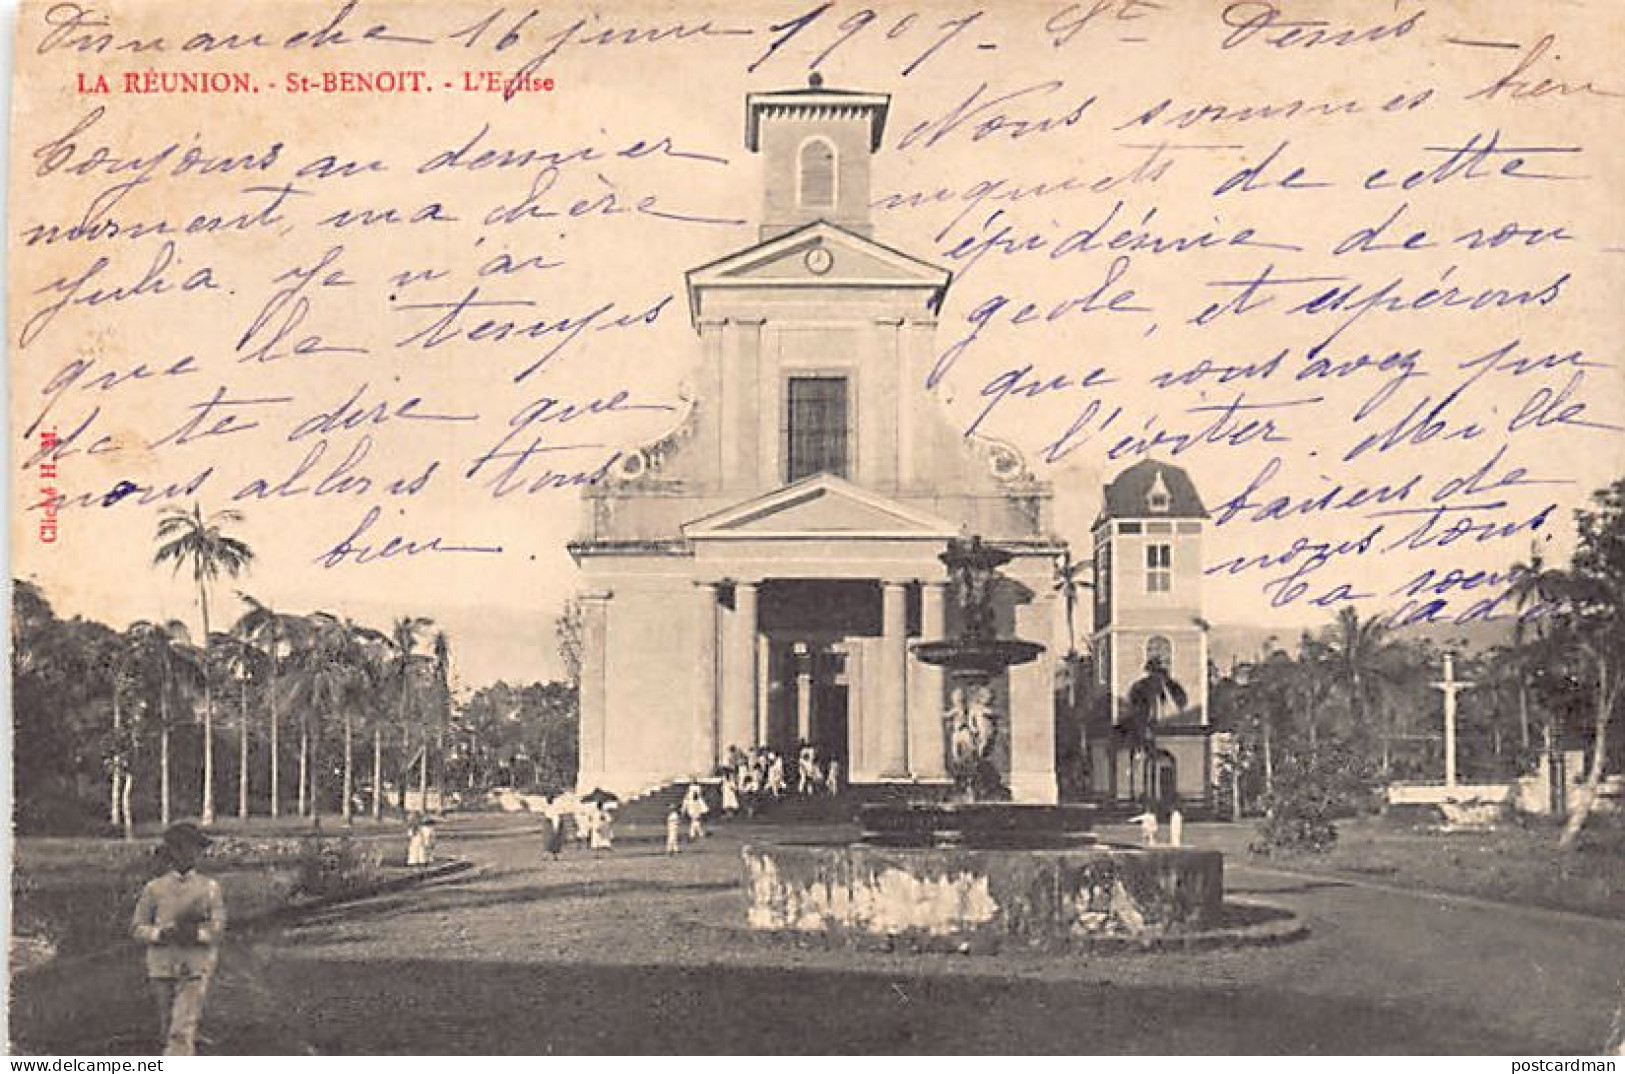 Dimanche 16 juin 1907 - St Denis -
LA RÉUNION. - St-BENOIT. - L'Eglise
Toujours au dernier
moment, ma chère
Julia. Je n'ai
que le temps
de te dire que
nous allons tous
bien.
Nous sommes bien
inquiets de cette
épidémie de rou-
geole, et espérons
que vous avez pu
l'éviter. Mille
baisers de
nous tous.
Ta soeur
Cliché H. M.
delcampe.net
postcardman